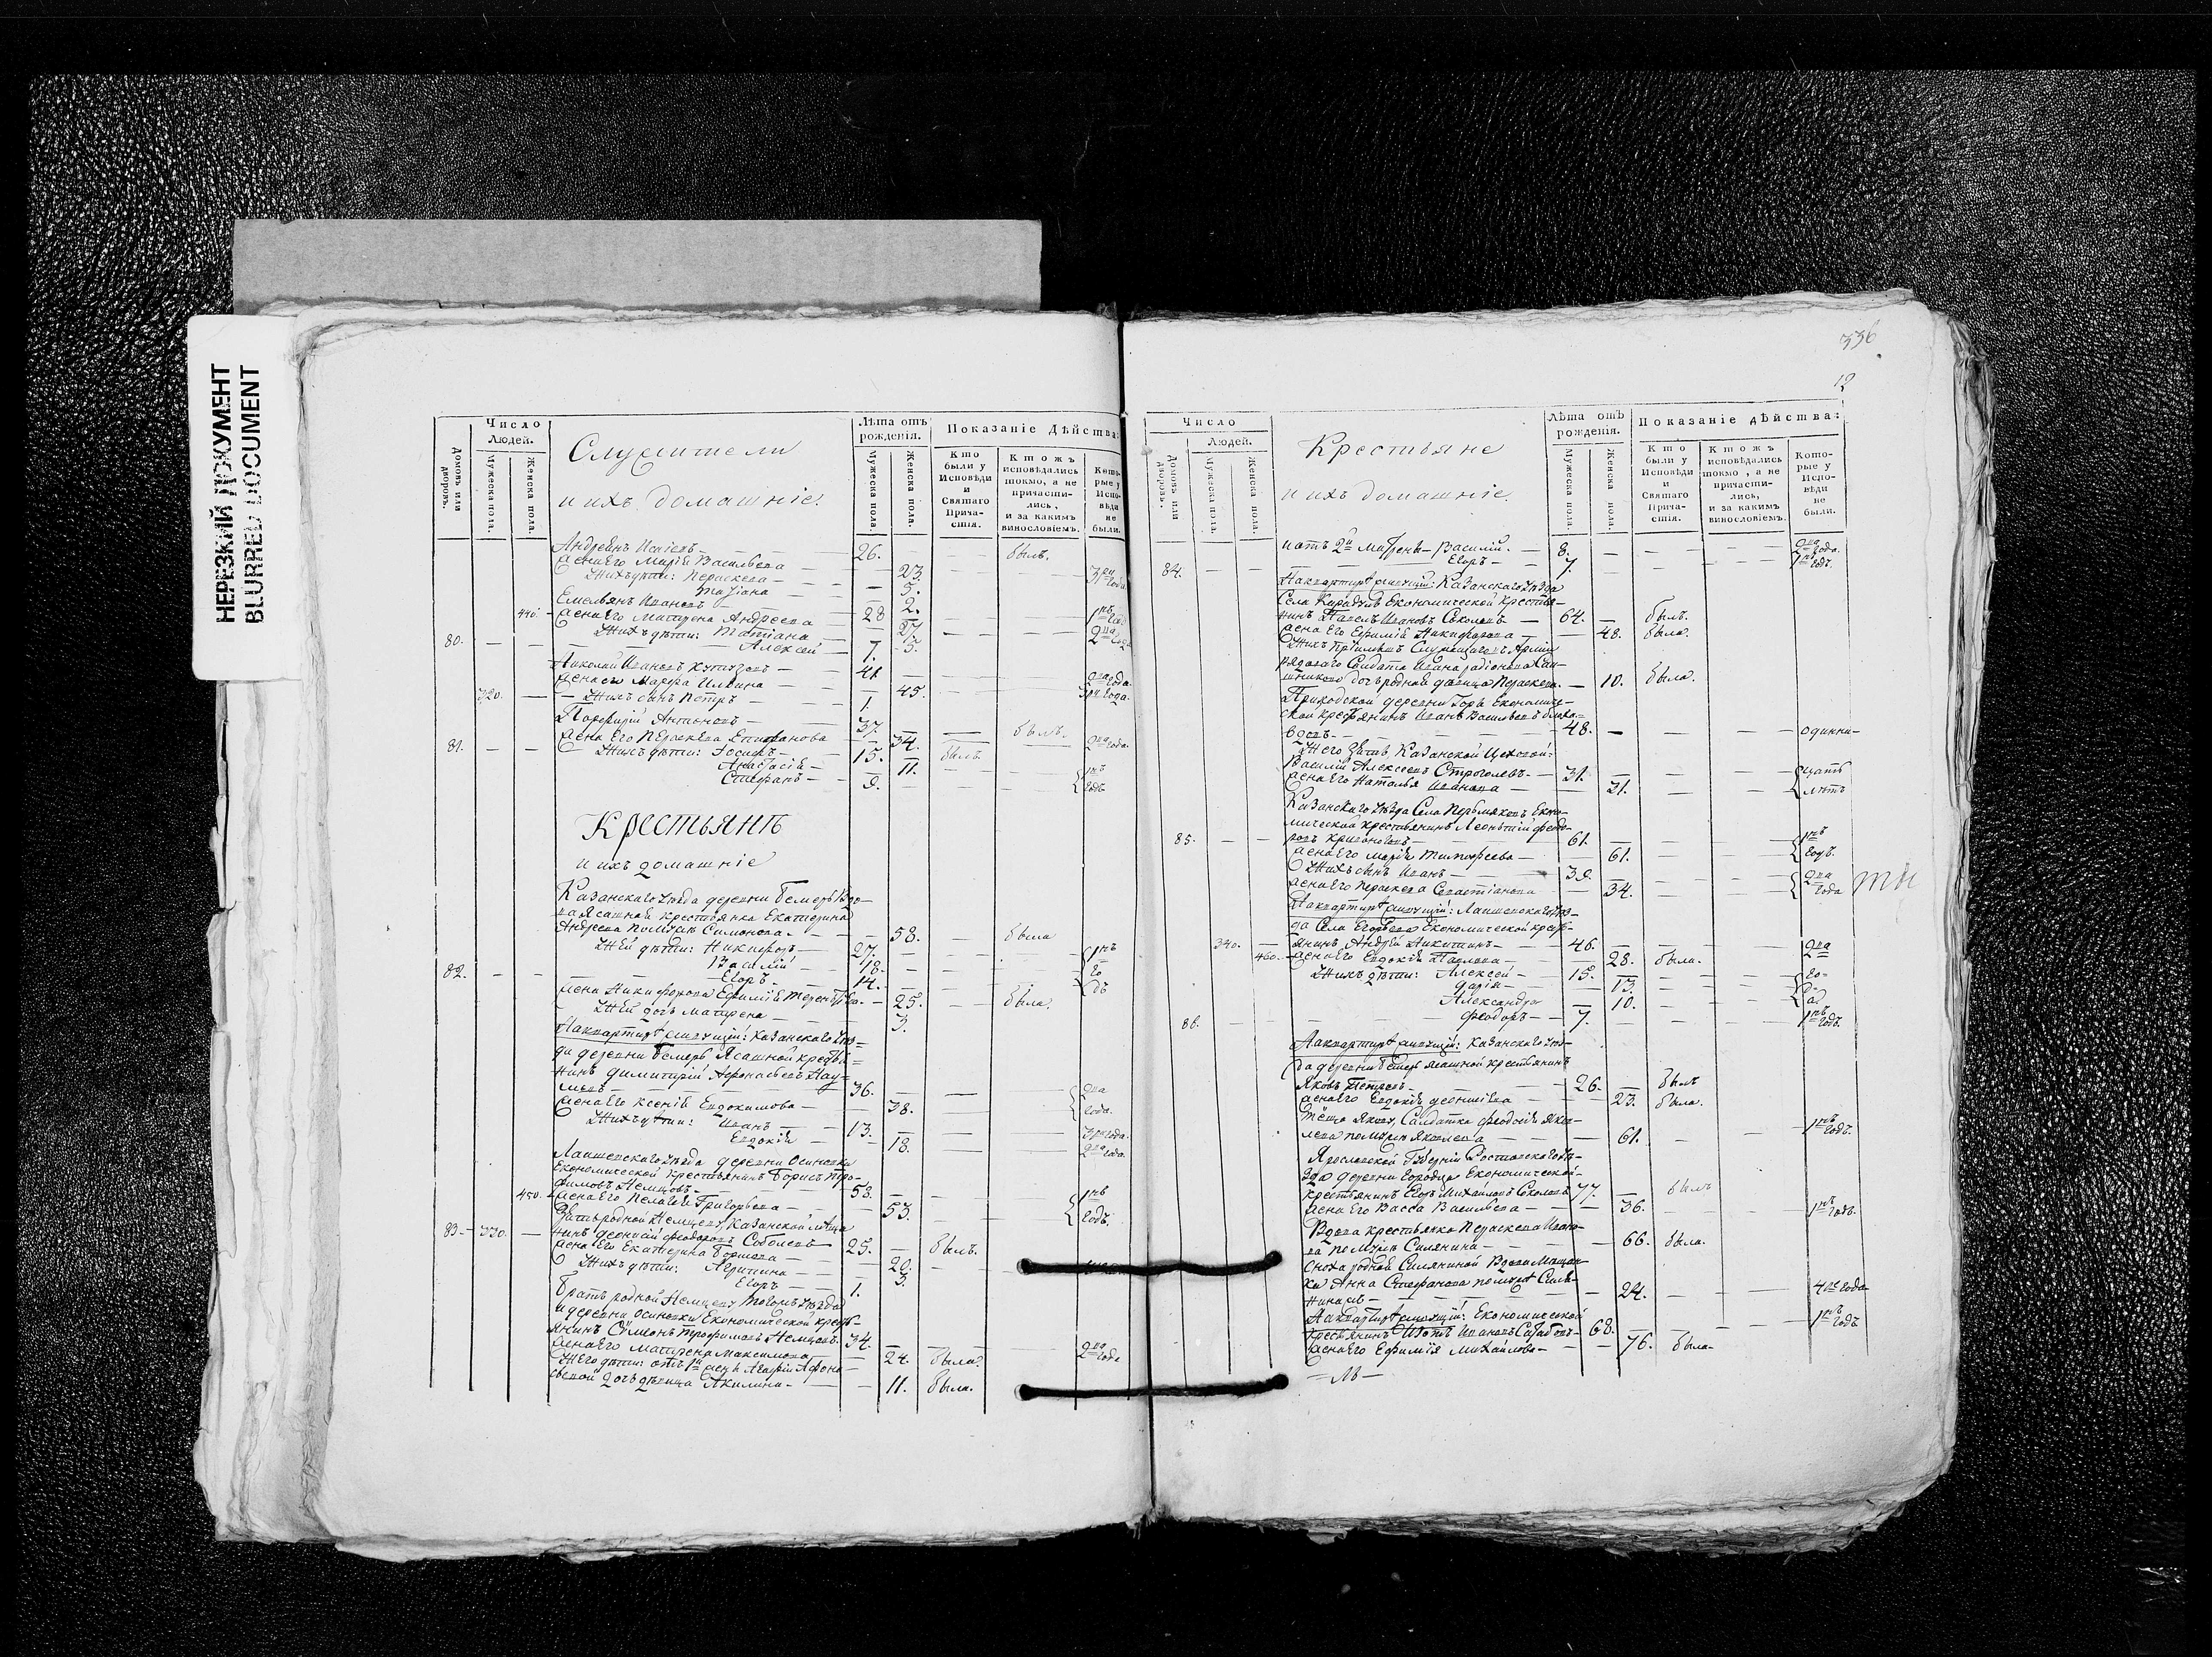 НЕРЕЗКИЙ ДОКУМЕНТ
BLURRED DOCUMENT
Число
Людей.
Домовъ или дворовъ.
Мужеска пола.
Женска пола.
Служители
и ихъ домашніе.
Лѣта отъ
рожденія.
Мужеска пола.
Женска пола.
Показаніе Дѣйства:
Кто
были у
Исповѣди
и
Святаго
Прича-
стія.
Ктожъ
исповѣдались
токмо, а не
причасти-
лись,
и за какимъ
винословіемъ.
Кото-
рые у
Испо-
вѣди
не
были.
Андреянъ 26. былъ.
жена Его Марія Васильева 23.
У нихъ дѣти: Параскева 5.
Татіана 2.
Емельянъ Ивановъ 28
440. жена Его Матрена Андреева 27
У нихъ дѣти: Татіана 3.
80. Алексей 1.
Николай Ивановъ Кутузовъ 41
жена его Марфа Ильина 45. 2ва года.
320. У нихъ сынъ Петръ 1.
Порфирій Антоновъ 37. былъ.
жена Его Параскева Епифанова 34. 2ва года.
81. У нихъ дѣти: Іосифъ 15. былъ
Анастасія 11.
Стефанъ 9. годъ
Крестьянѣ
и ихъ домашніе
Казанскаго уѣзда деревни Бемерь вдо-
ва ясашная крестьянка Екатерина
Андреева по мужѣ Симонова 58. была
У ней дѣти: Никифоръ 27.
Василій 18.
82. Егоръ 14.
жена Никифорова Ефимія 25. была.
У ней дочь Матрена 3.
На квартирѣ живущій: Казанскаго уѣз-
да деревни Бемерь Ясашной кресть-
нинъ Димитрій Афонасьевъ Нау-
мовъ 36. 2ва
жена Его Ксенія Евдокимова 38. года.
У нихъ дѣти: Иванъ 13.
Евдокія 18. 2ва года.
Лаишевскаго уѣзда деревни Осиновки
Економической крестьянинъ Борисъ Тро-
фимовъ Немцовъ 53.
450. жена Его Пелагея Григорьева 53. годъ.
Зять родной Немцову Казанской мѣща
83. 330. нинъ Феодоровъ Соболевъ 25. былъ.
жена Его Екатерина Борисова 20.
У нихъ дѣти: Агрипина 3.
Егоръ 1.
Братъ родной Немцову тогожъ уѣзда
и деревни Осиновки Економической кресть-
янинъ Симеонъ Трофимовъ Немцовъ 34.
жена Его Матрена Максимова 24. была. 2ва года
У Его дѣти: отъ 1й жены Агафіи Афона-
сьевой дочь дѣвица Акилина 11. была.
336
12
Число
Людей.
Домовъ или дворовъ.
Мужеска пола.
Женска пола.
Крестьяне
и ихъ домашніе
Лѣта отъ
рожденія.
Мужеска пола.
Женска пола.
Показаніе дѣйства:
Кто
были у
Исповѣди
и
Святаго
Прича-
стія.
Ктожъ
исповѣдались
токмо, а не
причасти-
лись,
и за какимъ
винословіемъ.
Кото-
рые у
Испо-
вѣди
не
были.
и отъ 2й Матрены Василій 8. 2ва года.
84. Егоръ 7. годъ.
На квартирѣ живущій: Казанскаго уѣзда
Села Економической крестья-
нинъ Павелъ Ивановъ Соколовъ 64. былъ.
жена Его Ефимія Никифорова 48. была.
У нихъ пріемышъ Служащаго въ Арміи
рядоваго Солдата Ивана Родіонова
дочь родная дѣвица Параскева 10. была.
Приходской деревни Горъ Економиче-
ской крестьянинъ Иванъ Васильевъ
48. одинна-
У его зять Казанской Цеховой
Василій Алексеевъ Строголевъ 31. цать
жена Его Наталья Иванова 21. лѣтъ
Казанскаго уѣзда Села Еконо-
мической крестьянинъ Леонтій Феодо-
85. ровъ 61.
жена Его Марія Тимофеева 61. годъ.
У нихъ сынъ Иванъ 39. 2ва
жена Его Параскева Севастіанова 34. года
На квартирѣ живущій: Лаишевскаго уѣз-
да Села Егорьева Економической кресть-
340. янинъ Андрей Никитинъ 46. 2ва
460. жена Его Евдокія Павлова 28. была.
У нихъ дѣти: Алексей 15.
Дарія 13.
Александра 10.
86. Феодоръ 7. годъ.
На квартирѣ живущій: Казанскаго уѣз-
да деревни Бемерь ясашной крестьянинъ
Яковъ Петровъ 26. былъ
жена Его Евдокія 23. была.
Тёща Якову, Салдатка Феодосія Яков-
лева по мужѣ Яковлева 61. годъ.
Ярославской Губерніи Ростовскаго уѣ-
зда деревни Городца Економической
крестьянинъ Егоръ Михайловъ Соколовъ 77. былъ
жена Его Васса Васильева 36. годъ.
Вдова крестьянка Параскева Ивано-
ва по мужѣ Силянина 66. была.
Сноха родная Силяниной Вдова Мѣщан-
ка Анна Стефанова по мужѣ Силя-
нина 24. 4ре года
На квартирѣ живущій: Економической
крестьянинъ Изотъ Ивановъ 68. годъ
жена Его Ефимія Михайлова 76. была